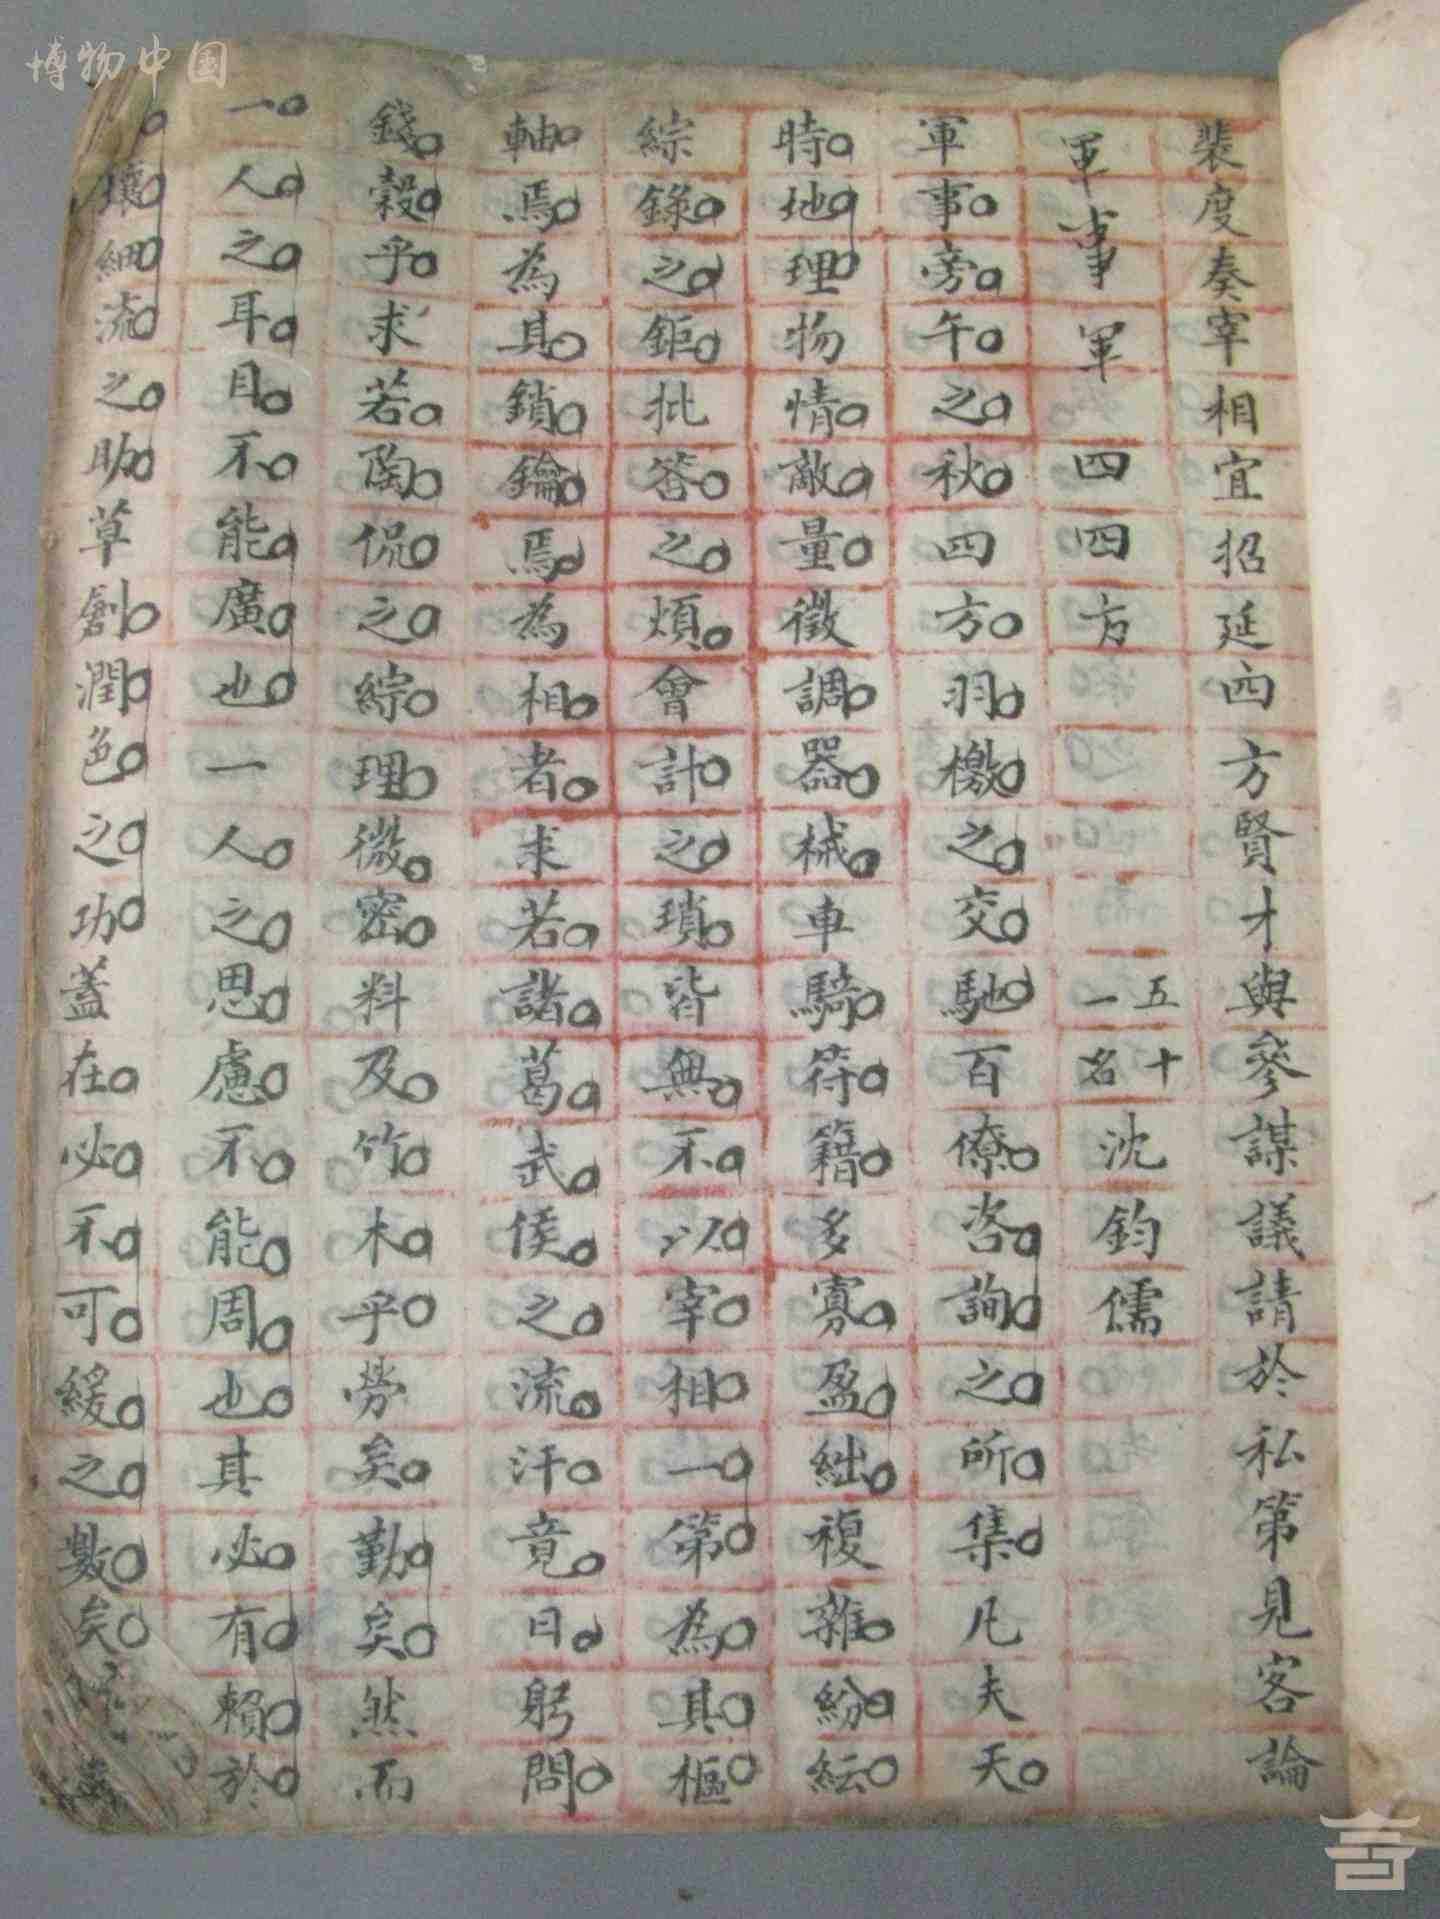 博物中国
裴度奏宰相宜招延四方賢才與參謀議請於私第見客論
軍事軍四四方五十一名沈鈞儒
軍事旁午之秋四方羽檄之交馳百僚咨詢之所集凡夫天
時地理物情敵量徵調器械車騎符籍多寡盈絀複雜紛紜
綜錄之鉅批答之煩會計之瑣皆無不以宰相一第為其樞
軸焉為其鎖鑰焉為相者求若諸葛武侯之流汗竟日躬問
錢穀乎求若陶侃之綜理微密料及竹木乎勞矣勤矣然而
一人之耳目不能廣也一人之思慮不能周也其必有賴於
壤細流之助草創潤色之功蓋在必不可緩之數矣